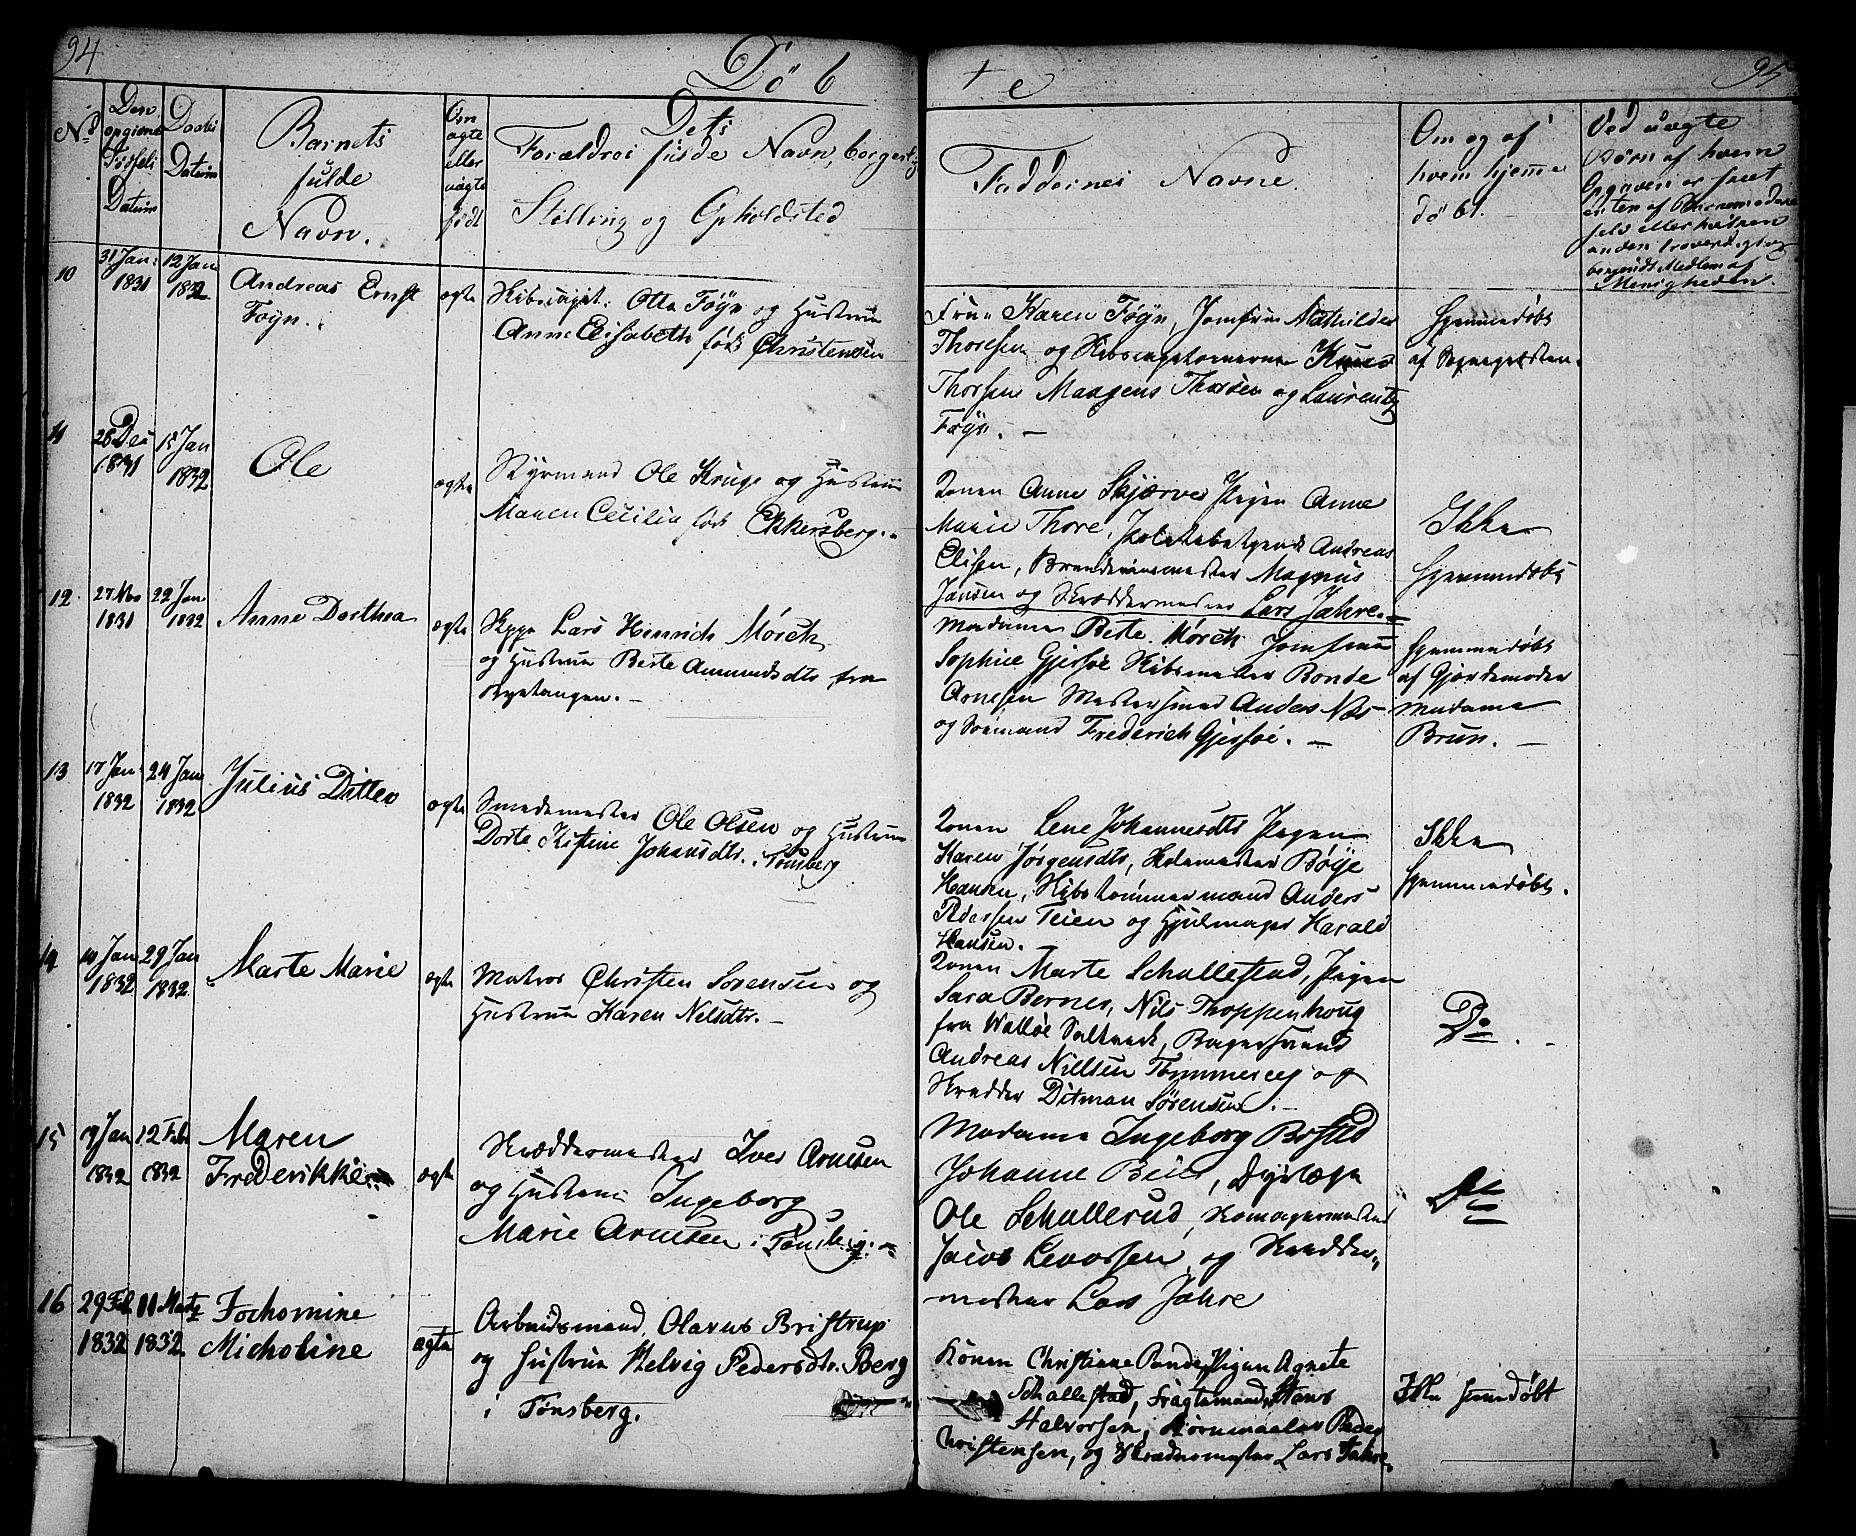 94
Døb
te
95
No
Den
opgivne
Fødsels
Datum
Daabs
Datum
Barnets
fulde
Navn.
Om
ægte
eller
uægte
født
Dets
Forældres fulde Navn, borgerlig
Stilling og Opholdsted
Faddernes Navne.
Om og af
hvem hjemme
døbt.
Ved uægte
Børn af hvem
Opgaven er skeet
enten af Barnemoderen
selv eller hvilken
anden troværdigt og
Medlem af
Menigheden.
10
31 Jan:
1831
12 Jan
1832
Andreas Ernst
Føyn.
ægte
Skibscapit: Otto Føyn og Hustrue
Anne Elisabeth født Christensen
Frue Karen Føyn, Jomfrue Mathilde
Thoresen og Skibscapitainerne
Thorsen Maagens Thorsen og Laurentz
Føyn. —
Hjemmedøbt
af Sognepresten.
11
28 Dec
1831
15 Jan
1832
Ole
ægte
Styrmand Ole Kruge og Hustrue
Maren Cecilia født Ekkersberg.
Konen Anne Skjærve Pigen Anne
Marie Thore, Andreas
Elisen, Magnus
Jansen og Skreddermester Lars Jahre. —
Ikke
Hjemmedøbt
12
27 Nov
1831
22 Jan.
1832
Anne Dorthea
ægte
Skipr Lars Hinrich Mørch
og Hustrue Berte Amundsdtr fra
Nyetangen. —
Madame Berte Mørch Jomfrue
Sophie Gjersøe Bonde
Arnesen Mestersmed Anders Næs
og Sømand Frederich Gjersøe. —
Hjemmedøbt
af Gjordemoder
Madame
Brun. —
13
17 Jan
1832
24 Jan
1832
Julius Ditlev
ægte
Smedemester Ole Olsen og Hustrue
Dorte Kistine Johansdtr. i Tønsberg
Konen Lene Johannesdtr Pigen
Karen Jørgensdtr, Børje
Hansen, Skibstømmermand Anders
Pedersen Teien og Hjulmager Harald
Hansen. —
Ikke
Hjemmedøbt.
14
14 Jan
1832
29 Jan
1832
Marte Marie
ægte
Matros Christen Sørensen og
Hustrue Karen Nilsdtr. —
Konen Marte Schallestad, Pigen
Sara Bernes, Nils Thoppenhoug
fra Walløe Saltverk, Bagersvend
Andreas Nillsen Tømmerey og
Skredder Ditman Sørensen. —
Do.
15
9 Jan
1832
12 Febr
1832
Maren
Frederikke
ægte
Skræddermester Iver Arnesen
og Hustrue Ingeborg
Marie Arnesen i Tønsberg. —
Madame Ingeborg Bofted
Johanne Beier, Dyrlæge
Ole Schallerud,
Jacob Levorsen og Skredder
mester Lars Jahre
Do
16
29 Feb
1832
11 Martz
1832
Jochomine
Micholine
ægte
Arbeidsmand Olavus Bristrup
og Hustrue Helvig Pedersdtr. Berg
i Tønsberg.
Konen Christianne Bande, Pigen Agnete
Schallestad, Fragtemand Hans
Halvorsen, Kornmaaler Peder
Christensen, og Skrædermester Lars Jahre.
Ikke hjemdøbt